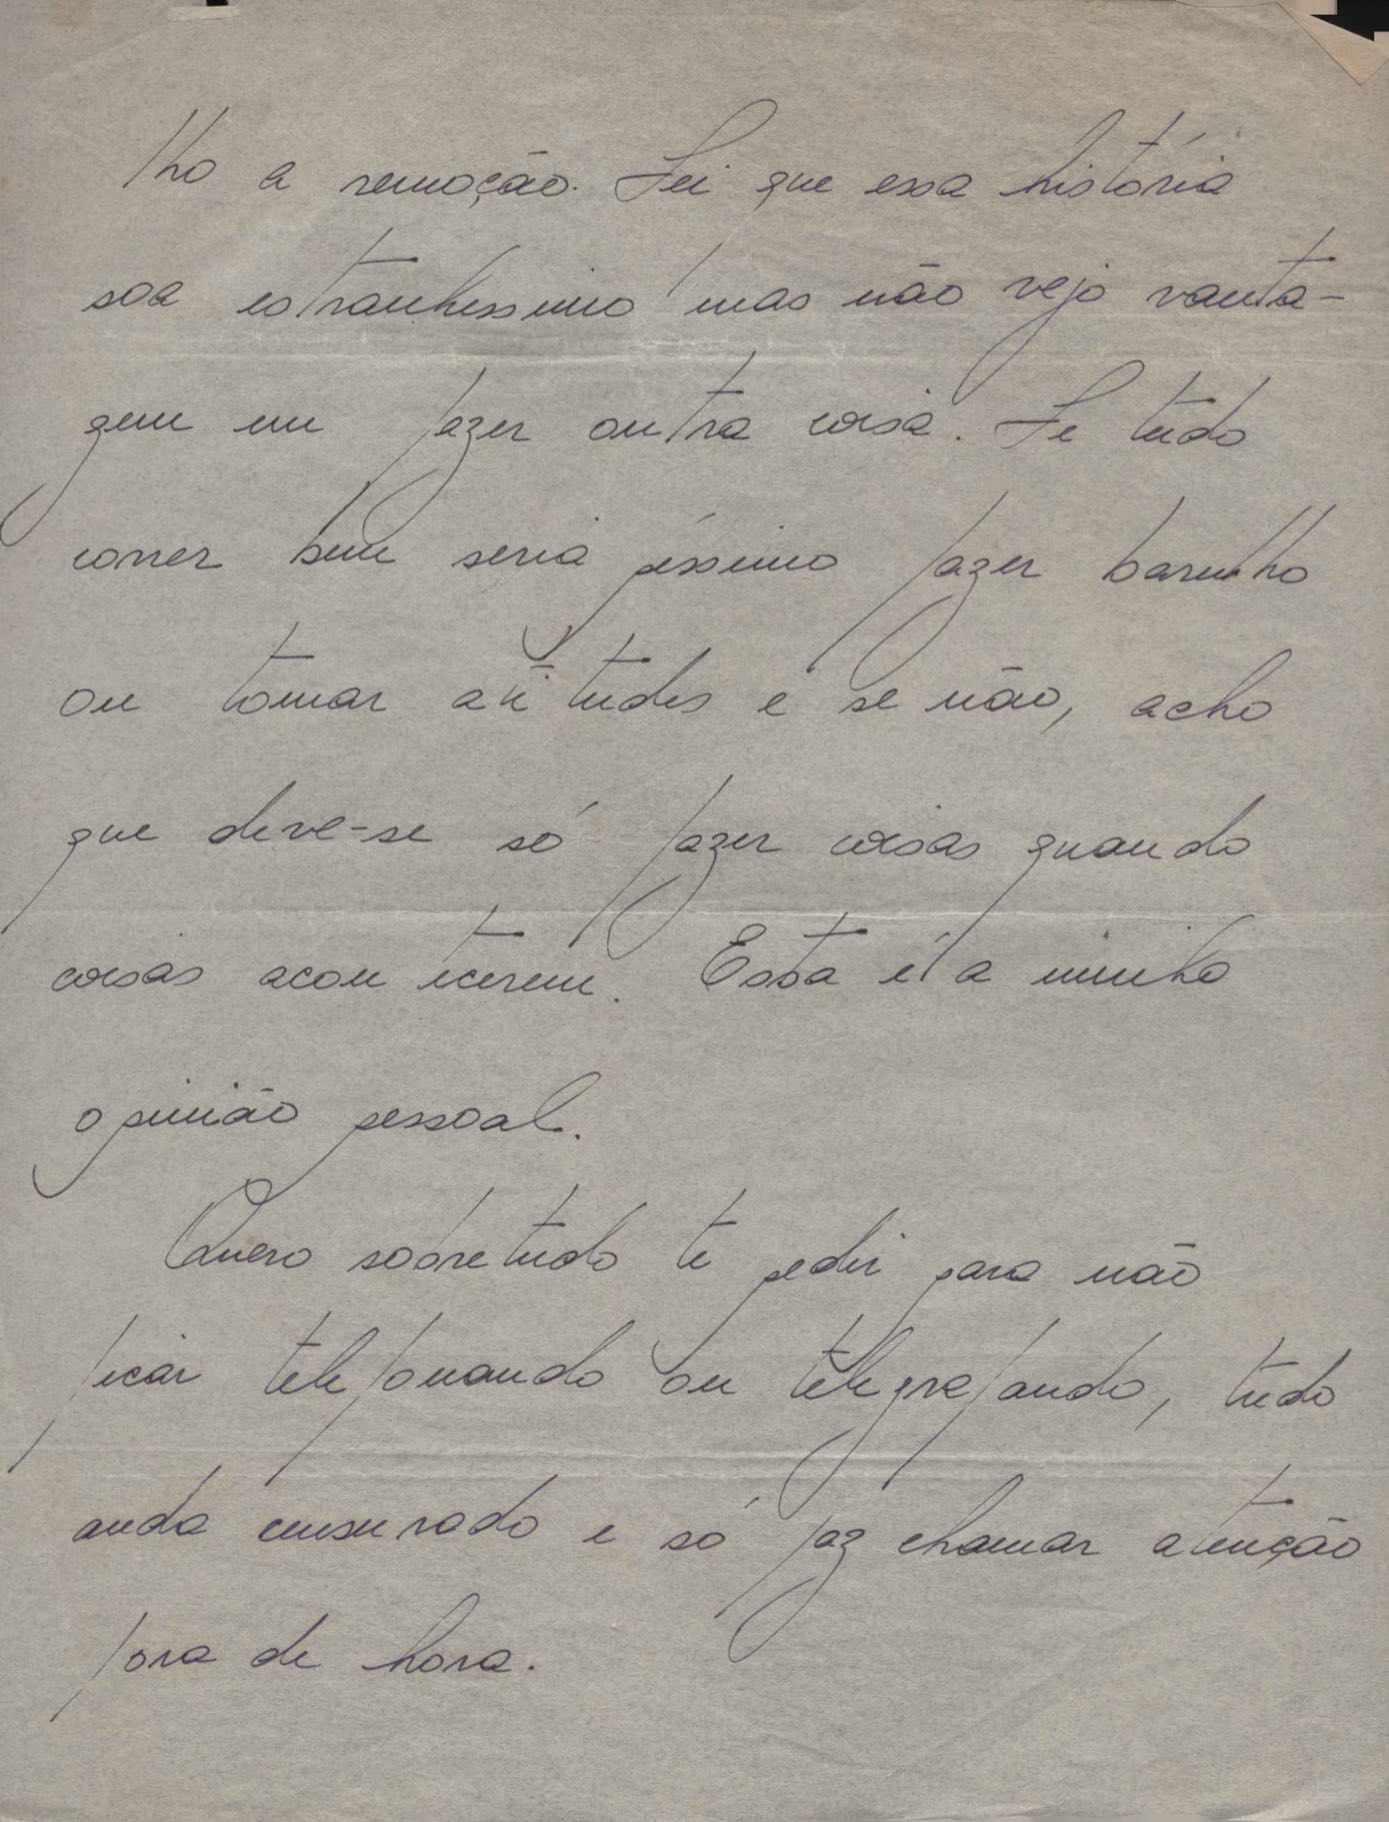 lho a remoção. Sei que essa história
soa estranhessimo mas não vejo vanta-
gem em fazer outra coisa. Se tudo
correr bem seria péssimo fazer barulho
ou tomar atitudes e se não, acho
que deve-se só fazer coisas quando
coisas acontecerem. Essa é a minha
opinião pessoal.
Quero sobretudo te pedir para não
ficar telefonando ou telegrafando, tudo
anda censurado e só faz chamar atenção
fora de hora.